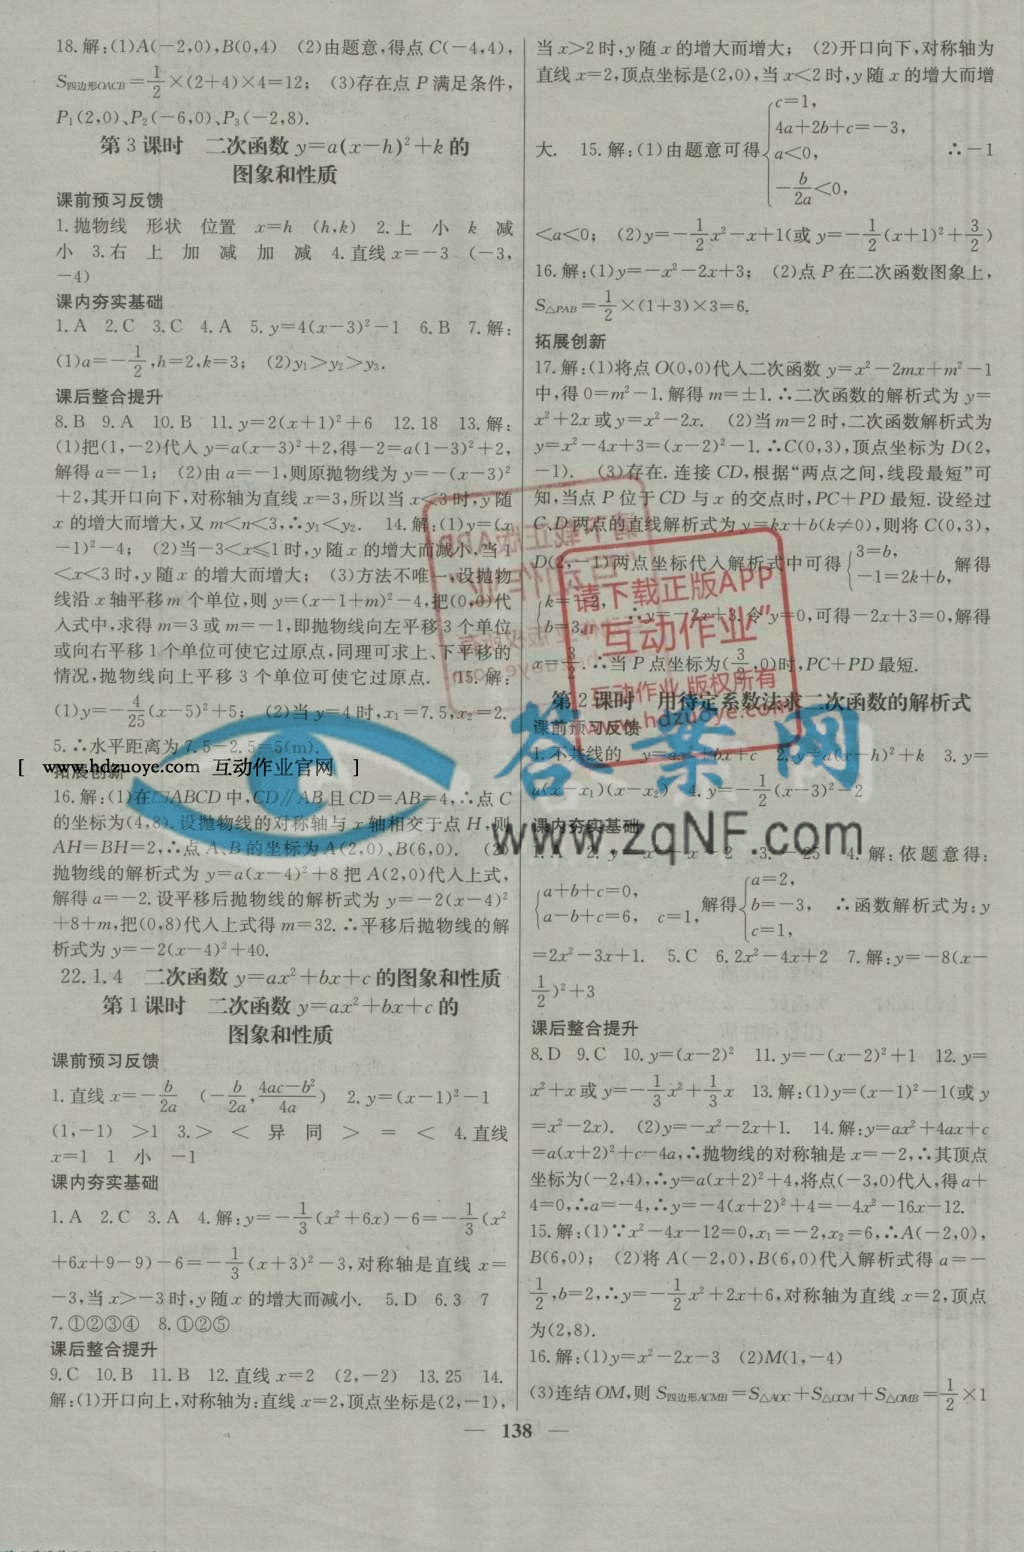 18.解:(1)A(-2,0),B(0,4) (2)由题意,得点C(-4,4),
S四边形OACB=1/2×(2+4)×4=12; (3)存在点P满足条件,
P₁(2,0)、P₂(-6,0)、P₃(-2,8).
第3课时 二次函数y=a(x-h)²+k的
图象和性质
课前预习反馈
1.抛物线 形状 位置 x=h (h,k) 2.上 小 k 减
小 3.右 上 加 减 加 减 4.直线x=-3 (-3,
-4)
课内夯实基础
1.A 2.C 3.C 4.A 5.y=4(x-3)²-1 6.B 7.解:
(1)a=-1/2,h=2,k=3; (2)y₁>y₂>y₃.
课后整合提升
8.B 9.A 10.B 11.y=2(x+1)²+6 12.18 13.解:
(1)把(1,-2)代入y=a(x-3)²+2,得-2=a(1-3)²+2,
解得a=-1; (2)由a=-1,则原抛物线为y=-(x-3)²
+2,其开口向下,对称轴为直线x=3,所以当x<3时,y随
x的增大而增大,又m<n<3,∴y₁<y₂. 14.解:(1)y=(x
-1)²-4; (2)当-3<x≤1时,y随x的增大而减小,当1
<x<3时,y随x的增大而增大; (3)方法不唯一,设抛物
线沿x轴平移m个单位,则y=(x-1+m)²-4,把(0,0)代
入式中,求得m=3或m=-1,即抛物线向左平移3个单位
或向右平移1个单位可使它过原点,同理可求上、下平移的
情况,抛物线向上平移3个单位可使它过原点. 15.解:
(1)y=-4/25(x-5)²+5; (2)当y=4时,x₁=7.5,x₂=2.
5.∴水平距离为7.5-2.5=5(m).
[ www.hdzuoye.com 互动作业官网 ]
拓展创新
16.解:(1)在▱ABCD中,CD∥AB且CD=AB=4,∴点C
的坐标为(4,8).设抛物线的对称轴与x轴相交于点H,则
AH=BH=2,∴点A、B的坐标为A(2,0)、B(6,0). (2)
抛物线的解析式为y=a(x-4)²+8把A(2,0)代入上式,
解得a=-2.设平移后抛物线的解析式为y=-2(x-4)²
+8+m,把(0,8)代入上式得m=32.∴平移后抛物线的解
析式为y=-2(x-4)²+40.
22.1.4 二次函数y=ax²+bx+c的图象和性质
第1课时 二次函数y=ax²+bx+c的
图象和性质
课前预习反馈
1.直线x=-b/2a (-b/2a,4ac-b²/4a) 2.y=(x-1)²-1
(1,-1) >1 3.> < 异 同 > = < 4.直线
x=1 1 小 -1
课内夯实基础
1.A 2.C 3.A 4.解:y=-1/3(x²+6x)-6=-1/3(x²
+6x+9-9)-6=-1/3(x+3)²-3,对称轴是直线x=
-3,当x>-3时,y随x的增大而减小. 5.D 6.3 7
7.①②③④ 8.①②⑤
课后整合提升
9.C 10.B 11.B 12.直线x=2 (2,-2) 13.25 14.
解:(1)开口向上,对称轴为:直线x=2,顶点坐标是(2,-1),
当x>2时,y随x的增大而增大; (2)开口向下,对称轴为
直线x=2,顶点坐标是(2,0),当x<2时,y随x的增大而增
大. 15.解:(1)由题意可得{c=1,
4a+2b+c=-3,
a<0,
-b/2a<0,
∴-1
<a<0; (2)y=-1/2x²-x+1(或y=-1/2(x+1)²+3/2)
16.解:(1)y=-x²-2x+3; (2)点P在二次函数图象上,
S△PAB=1/2×(1+3)×3=6.
拓展创新
17.解:(1)将点O(0,0)代入二次函数y=x²-2mx+m²-1
中,得0=m²-1.解得m=±1.∴二次函数的解析式为y=
x²+2x或y=x²-2x. (2)当m=2时,二次函数解析式为
y=x²-4x+3=(x-2)²-1.∴C(0,3),顶点坐标为D(2,
-1). (3)存在.连接CD,根据“两点之间,线段最短”可
知,当点P位于CD与x的交点时,PC+PD最短.设经过
C、D两点的直线解析式为y=kx+b(k≠0),则将C(0,3),
D(2,-1)两点坐标代入解析式中可得{3=b,
-1=2k+b, 解得
{k=-2,
b=3, ∴y=-2x+3.令y=0,可得-2x+3=0,解得
x=3/2.∴当P点坐标为(3/2,0)时,PC+PD最短.
第2课时 用待定系数法求二次函数的解析式
课前预习反馈
1.不共线的 y=ax²+bx+c 2.y=a(x-h)²+k 3.y=
a(x-x₁)(x-x₂) 4.y=-1/2(x-3)²-2
课内夯实基础
1.A 2.y=x²-x-2 3.-25 4.解:依题意得:
{a+b+c=0,
a-b+c=6, c=1, 解得{a=2,
b=-3,
c=1, ∴函数解析式为:y
=2x²-3x+1. 5.C 6.2x²-4x+2 7.解:y=-8(x-
1/2)²+3
课后整合提升
8.D 9.C 10.y=(x-2)² 11.y=-(x-2)²+1 12.y=
x²+x或y=-1/3x²+1/3x 13.解:(1)y=(x-1)²-1(或y
=x²-2x). (2)y=-x²-2x+1. 14.解:y=ax²+4ax+c
=a(x+2)²+c-4a,∴抛物线的对称轴是x=-2,∴其顶点
坐标为(-2,4),∴y=a(x+2)²+4,将点(-3,0)代入,得a+
4=0,∴a=-4,∴y=-4(x+2)²+4=-4x²-16x-12.
15.解:(1)∵x²-4x-12=0,x₁=-2,x₂=6,∴A(-2,0),
B(6,0); (2)将A(-2,0),B(6,0)代入解析式得a=-
1/2,b=2,∴y=-1/2x²+2x+6,对称轴为直线x=2,顶点
为(2,8).
16.解:(1)y=x²-2x-3 (2)M(1,-4)
(3)连结OM,则S四边形ACMB=S△AOC+S△OCM+S△OMB=1/2×1
— 138 —
请下载正版APP
“互动作业”
互动作业 版权所有
www.hdzuoye.com
答案网
www.zqNF.com